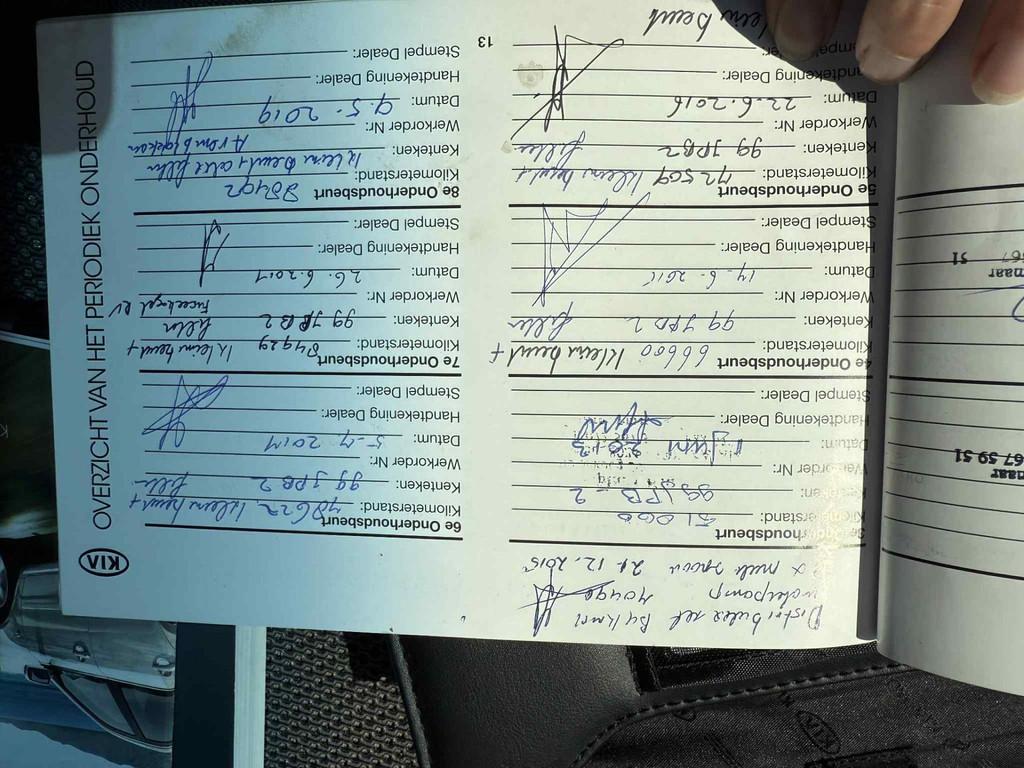 OVERZICHT VAN HET PERIODIEK ONDERHOUD
KIA
Distributie set
waterpomp
21.12.2015
3e Onderhoudsbeurt
Kilometerstand: 51000
Kenteken: 99 JPB-2
Werkorder Nr:
Datum: 11 Juni 2013
Handtekening Dealer:
Stempel Dealer:
4e Onderhoudsbeurt
Kilometerstand: 66600 Klein beurt +
Kenteken: 99 JPB 2 filter
Werkorder Nr:
Datum: 14-6-2015
Handtekening Dealer:
Stempel Dealer:
5e Onderhoudsbeurt
Kilometerstand: 72509 Klein beurt +
Kenteken: 99 JPB2 filter
Werkorder Nr:
Datum: 22.6.2016
Handtekening Dealer:
Stempel Dealer:
klein beurt
13
6e Onderhoudsbeurt
Kilometerstand: 78622 klein beurt +
Kenteken: 99 JPB 2 filter
Werkorder Nr:
Datum:
Handtekening Dealer:
Stempel Dealer:
7e Onderhoudsbeurt
Kilometerstand: 84929 klein beurt +
Kenteken: 99 JPB 2 filter
Werkorder Nr:
Datum: 26.6.2017
Handtekening Dealer:
Stempel Dealer:
8e Onderhoudsbeurt
Kilometerstand: klein beurt
Kenteken:
Werkorder Nr:
Datum: 9.5.2019
Handtekening Dealer:
Stempel Dealer:
naar
67 59 51
naar
51
KIA